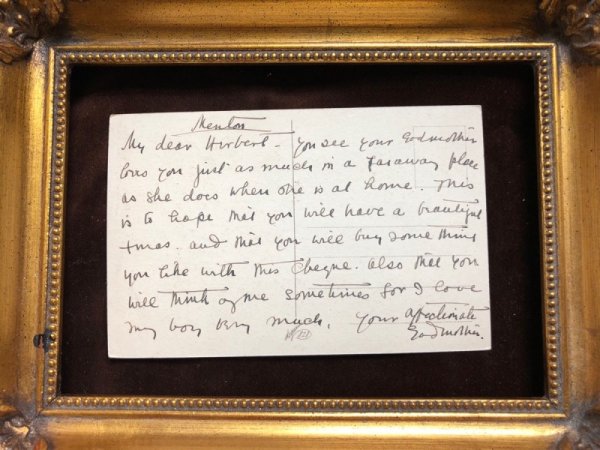 Menton
My dear Herbert - you see your Godmother
loves you just as much in a faraway place
as she does when she is at home. This
is to hope that you will have a beautiful
Xmas. and that you will buy something
you like with this cheque. also that you
will think of me sometimes for I love
my boy very much. Your affectionate
Godmother.